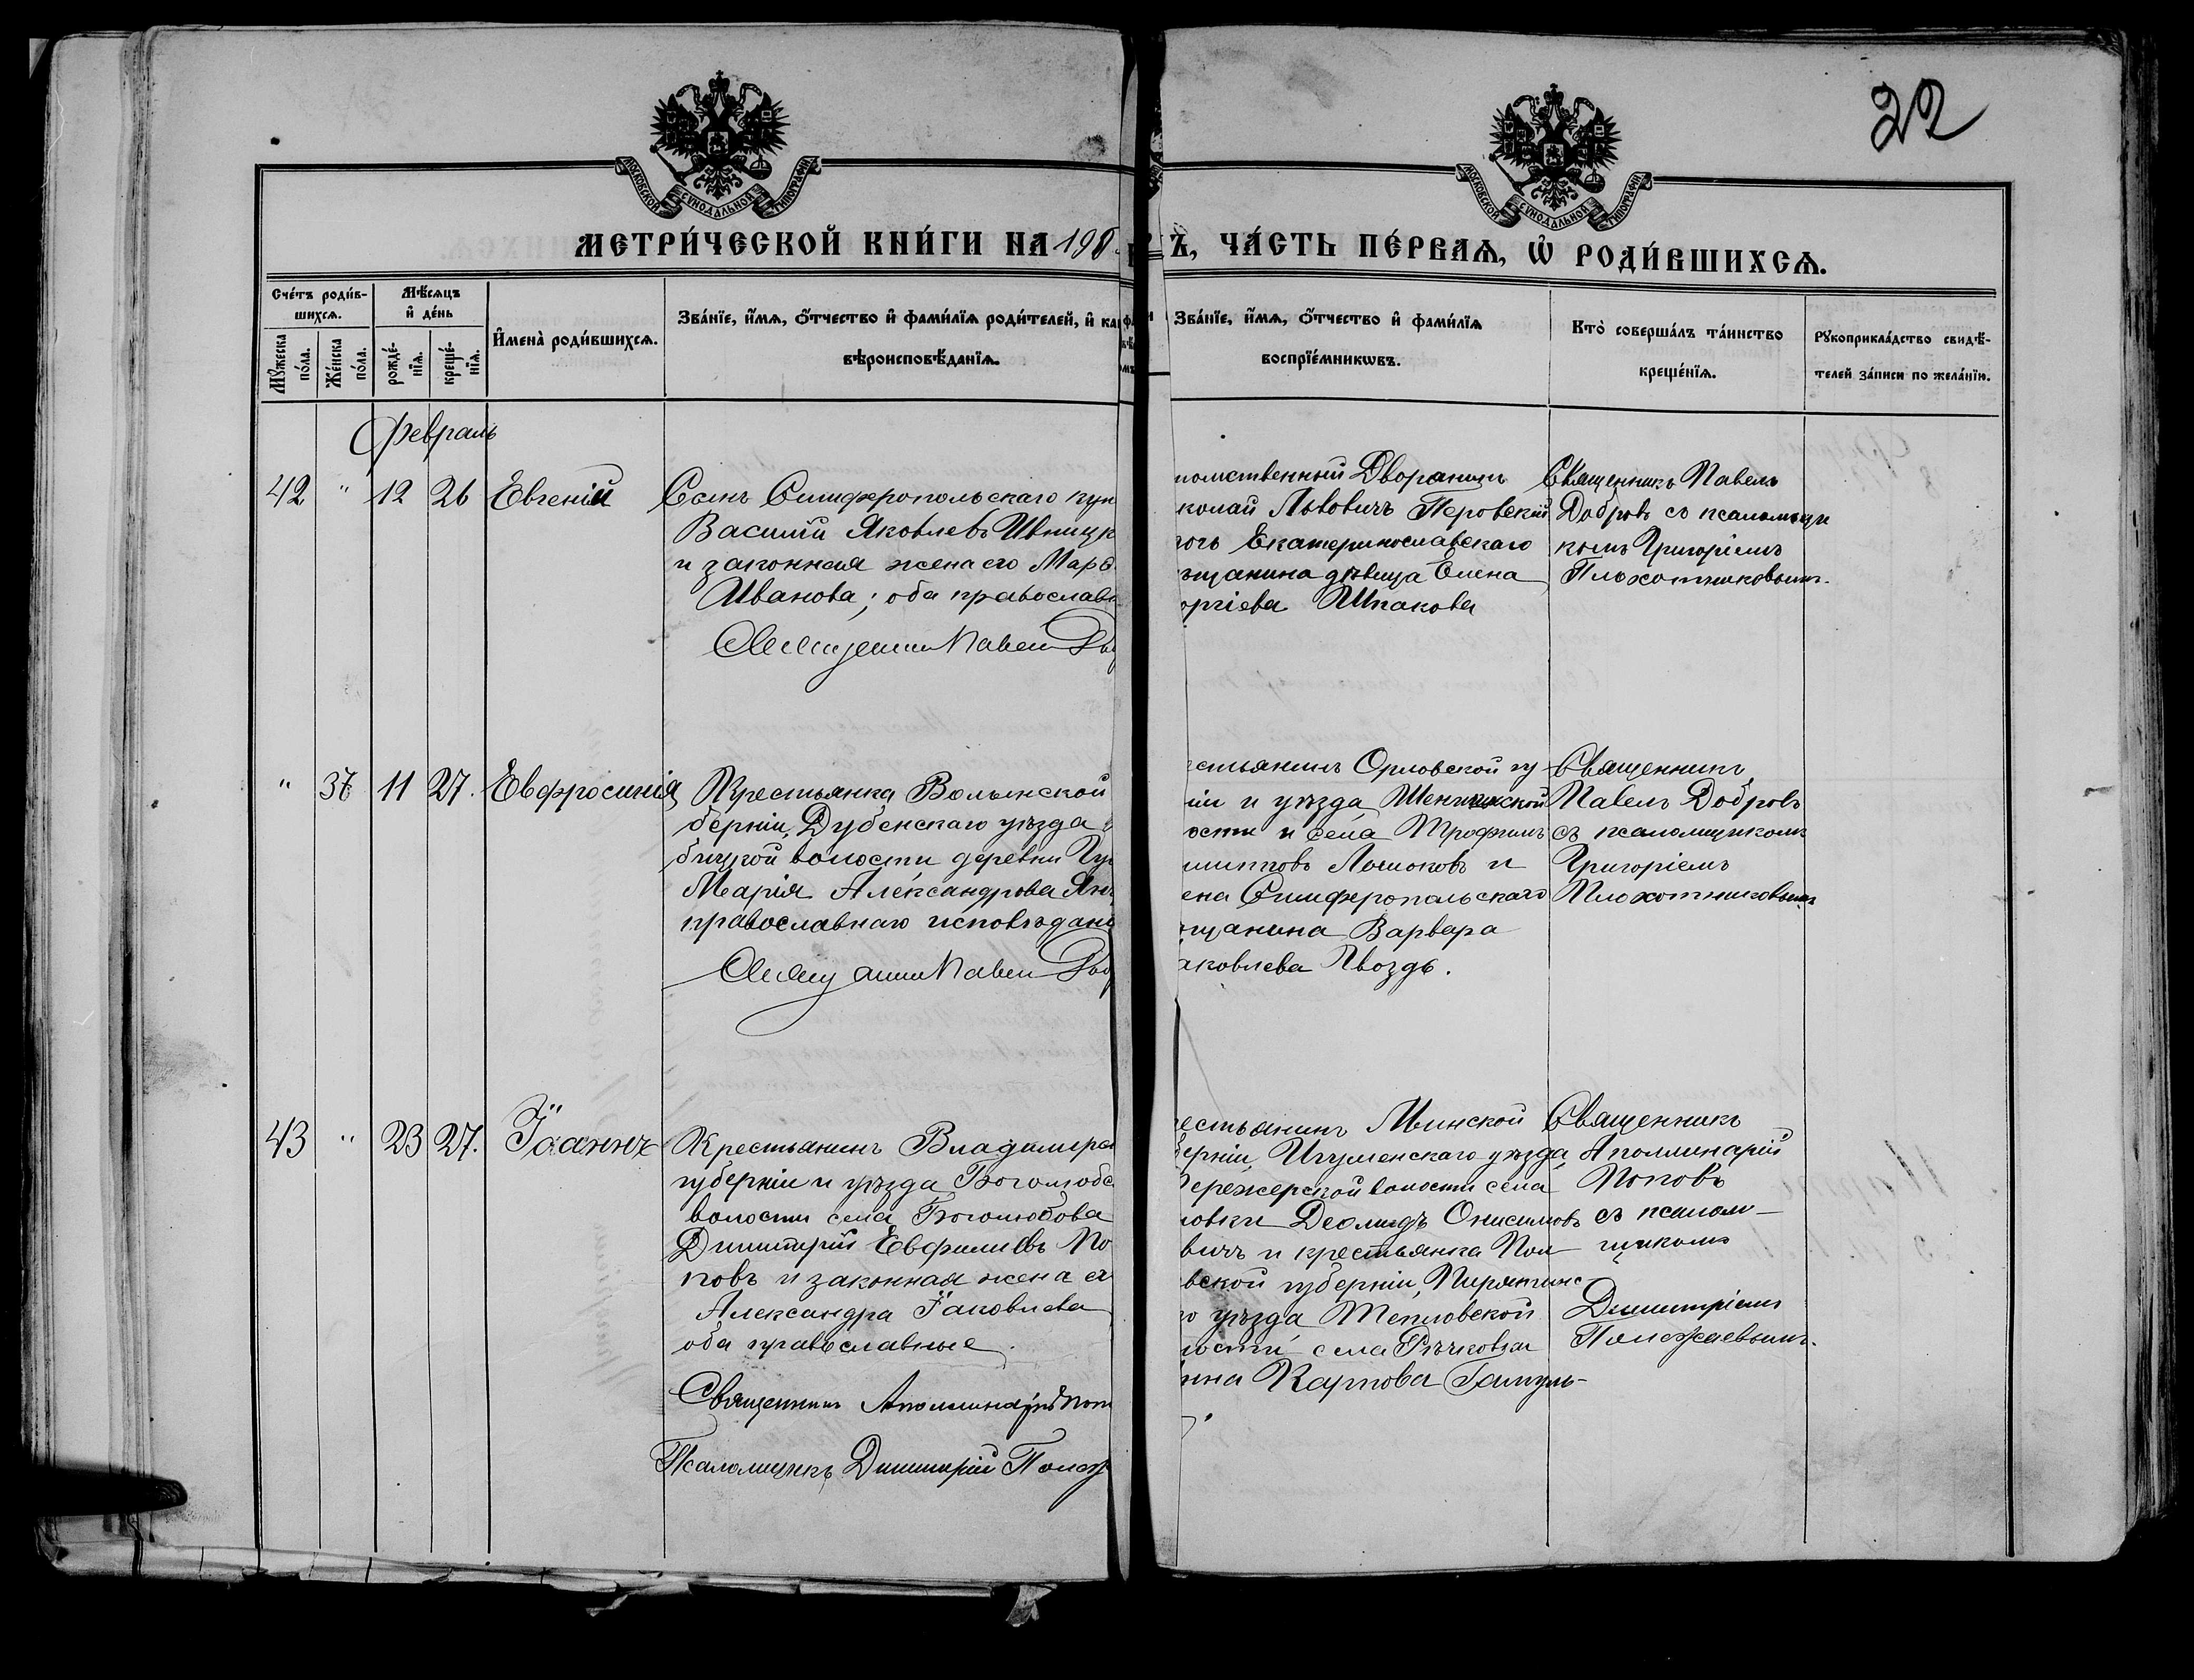 22
МОСКОВСКОЙ СУНОДАЛЬНОЙ ТИПОГРАФІИ
МОСКОВСКОЙ СУНОДАЛЬНОЙ ТИПОГРАФІИ
МЕТРИ́ЧЕСКОЙ КНИ́ГИ НА 190
Ъ, ЧА́СТЬ ПЕ́РВАѦ, Ѡ҆ РОДИ́ВШИХСѦ.
Сче́тъ роди́в-
шихсѧ.
Мꙋ́жеска по́ла.
Же́нска по́ла.
Мѣ́сѧцъ
и҆ де́нь
рожде́-
нїѧ.
креще́-
нїѧ.
И҆мена̀ роди́вшихсѧ.
Зва́нїе, и҆́мѧ, ѻ҆́тчество и҆ фами́лїѧ роди́телей, и҆ ка
вѣроисповѣ́данїѧ.
Зва́нїе, и҆́мѧ, ѻ҆́тчество и҆ фами́лїѧ
воспрїе́мникѡвъ.
Кто̀ соверша́лъ та́инство
креще́нїѧ.
Рꙋкоприкла́дство свидѣ́-
телей за́писи по жела́нїю.
Февраль
42 " 12 26 Евгеній
Сынъ Симферопольскаго куп
Василій Яковлевъ
и законная жена его Марѳ
Иванова; обa православн
Священникъ Павелъ Доб
помственный Дворянинъ
колай Львовичъ Перовскій
очь Екатеринославскаго
щанина дѣвица Елена
оргіева Шпакова
Священникъ Павелъ
Добровъ съ псаломщи
комъ Григоріемъ
Плохотниковымъ.
" 37 11 27. Евфросинія
Крестьянка Волынской
берніи, Дубенскаго уѣзда
бицкой волости деревни
Марія Александрова
православнаго исповѣдані
Священникъ Павелъ Доб
естьянинъ Орловской гу
ніи и уѣзда,
ости и села Трофимъ
и
ена Симферопольскаго
щанина Варвара
аковлева Гвоздь.
Священникъ
Павелъ Добровъ
съ псаломщикомъ
Григоріемъ
Плохотниковымъ
43 " 23 27. Іоаннъ
Крестьянинъ Владимірс
губерніи и уѣзда Боголюбс
волости села Боголюбова
Димитрій Евфиміевъ По
повъ и законная жена ег
Александра Іаковлева
оба православные.
Священникъ Аполлинарій Поп
Псаломщикъ Димитрій Полеж
естьянинъ Минской
берніи, Игуменскаго уѣзда,
волости села
Онисимовъ
вичъ и крестьянка Пол
вской губерніи, Пирятинс
о уѣзда Тепловской
лости села
нна Карпова Гамуль-
Священникъ
Аполлинарій
Поповъ
съ псалом-
щикомъ
Димитріемъ
Полежаевымъ.